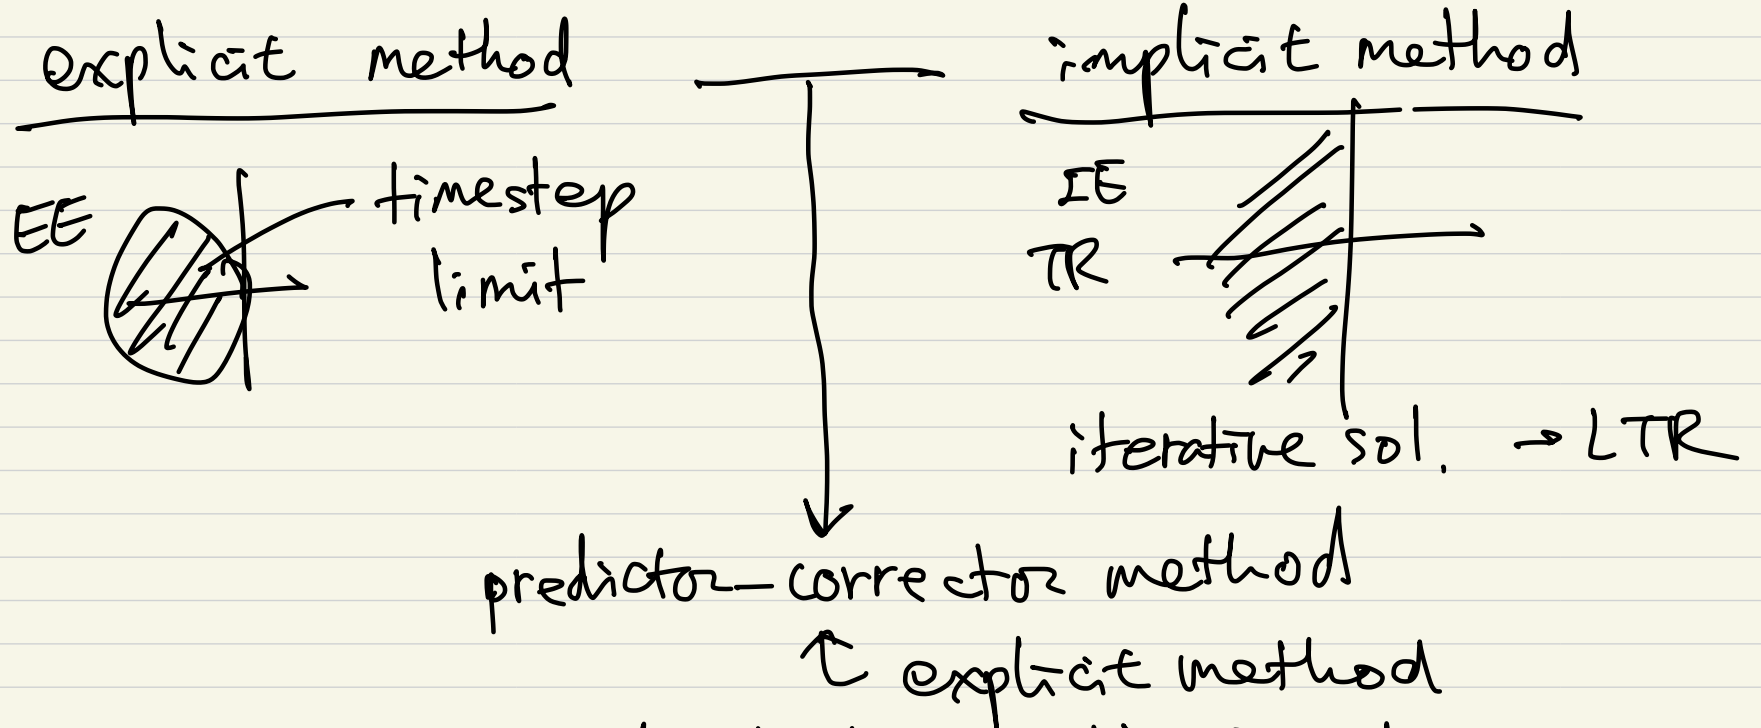 explicit method
implicit method
EE
timestep
limit
IE
TR
iterative sol. → LTR
predictor-corrector method
explicit method